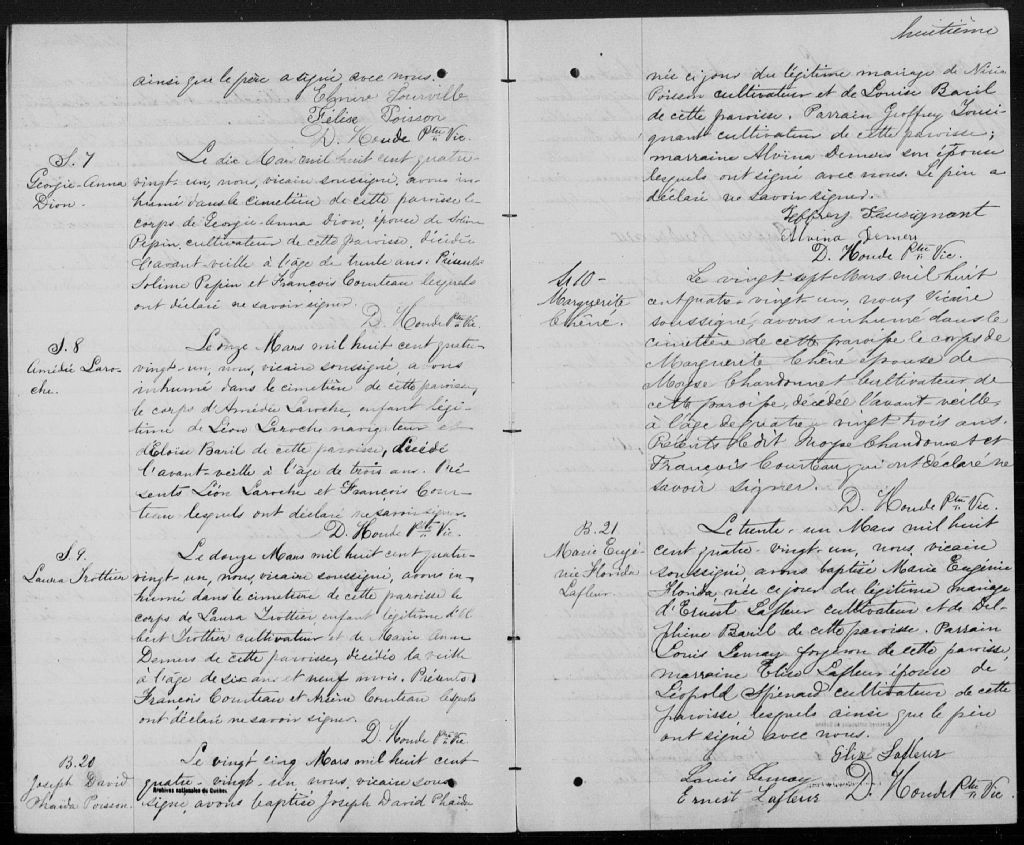 ainsi que le père a signé avec nous.
Elmire Tourville
Félise Poisson
D. Houde Ptre Vic.
S. 7
Georgie-Anna
Dion.
Le dix Mars mil huit cent quatre-
vingt-un, nous, vicaire soussigné, avons in-
humé dans le cimetière de cette paroisse le
corps de Georgie-Anna Dion, épouse de Solime
Pepin, cultivateur de cette paroisse, décédée
l'avant-veille à l'âge de trente ans. Présents
Solime Pepin et François Courteau lesquels
ont déclaré ne savoir signer.
D. Houde Ptre Vic.
S. 8
Amédée Laro-
che.
Le onze Mars mil huit cent quatre-
vingt-un, nous, vicaire soussigné, avons
inhumé dans le cimetière de cette paroisse,
le corps d'Amédée Laroche, enfant légi-
time de Léon Laroche navigateur et
d'Eloise Baril de cette paroisse, décédé
l'avant-veille à l'âge de trois ans. Pré-
sents Léon Laroche et François Cour-
teau lesquels ont déclaré ne savoir signer.
D. Houde Ptre Vic.
S. 9.
Laura Trottier
Le douze Mars mil huit cent quatre-
vingt-un, nous, vicaire soussigné, avons in-
humé dans le cimetière de cette paroisse le
corps de Laura Trottier, enfant légitime d'Al
bert Trottier cultivateur et de Marie Anne
Demers de cette paroisse, décédée la veille
à l'âge de six ans et neuf mois. Présents
François Courteau et Arsène Courteau lesquels
ont déclaré ne savoir signer.
D. Houde Ptre Vic.
B. 20
Joseph David
Phaïda Poisson.
Le vingt cinq Mars mil huit cent
quatre-vingt-un, nous, vicaire sous
signé, avons baptisé Joseph David Phaïda
Archives nationales du Québec
huitième
née ce jour du légitime mariage de
Poisson cultivateur et de Louise Baril
de cette paroisse. Parrain Geoffrey Lousi-
gnant cultivateur de cette paroisse;
marraine Alvina Demers son épouse
lesquels ont signé avec nous. Le père a
déclaré ne savoir signer.
Jeffrey Lousignant
Alvina Demers
D. Houde Ptre Vic.
S 10-
Marguerite
Chêné.
Le vingt sept Mars mil huit
cent quatre-vingt-un, nous Vicaire
soussigné, avons inhumé dans le
cimetière de cette paroisse le corps de
Marguerite Chêné Epouse de
Moyse Chandonnet Cultivateur de
cette paroisse, décédée l'avant veille,
à l'âge de quatre vingt trois ans.
Présents Le dit Moyse Chandonnet et
François Courteau qui ont déclaré ne
savoir signer.
D. Houde Ptre Vic.
B. 21
Marie Eugé-
nie Florida
Lafleur.
Le trente-un Mars mil huit
cent quatre-vingt-un, nous, vicaire
soussigné avons baptisé Marie Eugénie
Florida née ce jour du légitime mariage
d'Ernest Lafleur cultivateur et de Del-
phine Baril de cette paroisse. Parrain
Louis Lemay forgeron de cette paroisse,
marraine Elise Lafleur épouse de
Léopold Spénard cultivateur de cette
paroisse lesquels ainsi que le père
ont signé avec nous.
Elise Lafleur
Louis Lemay
Ernest Lafleur
D. Houde Ptre Vic